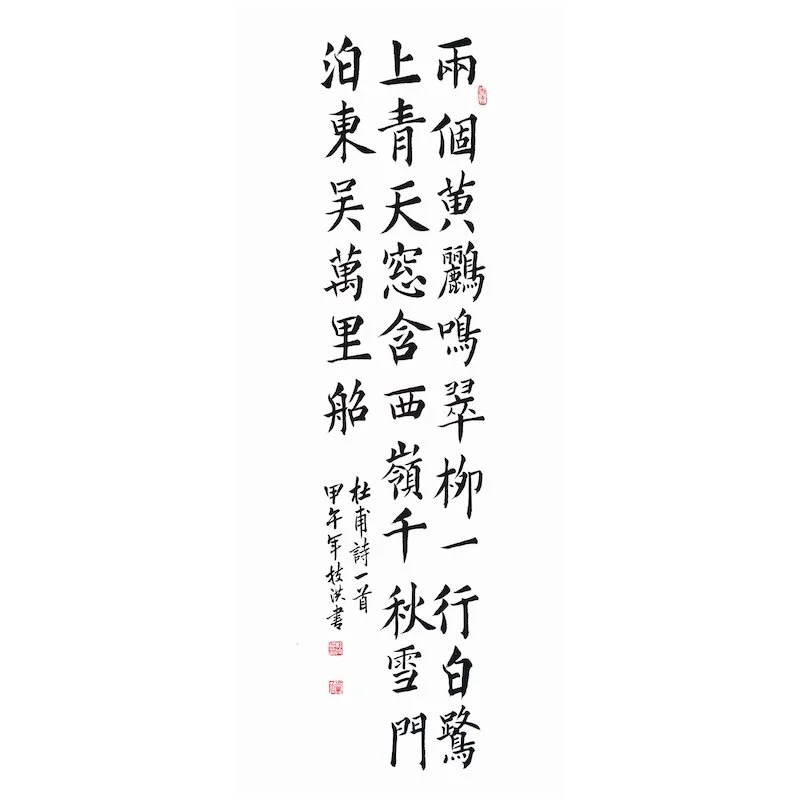 兩個黄鸝鳴翠柳一行白鷺
上青天窓含西嶺千秋雪門
泊東吴萬里船
杜甫詩一首
甲午年枝洪書